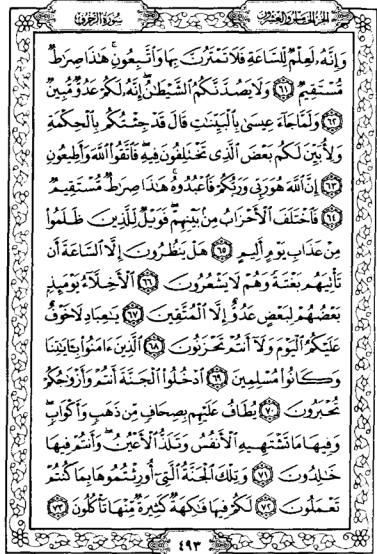 الجزء الخامس والعشرون سورة الزخرف
وَإِنَّهُۥ لَعِلْمٌ لِّلسَّاعَةِ فَلَا تَمْتَرُنَّ بِهَا وَٱتَّبِعُونِ ۚ هَٰذَا صِرَٰطٌ
مُّسْتَقِيمٌ ٦١ وَلَا يَصُدَّنَّكُمُ ٱلشَّيْطَٰنُ ۖ إِنَّهُۥ لَكُمْ عَدُوٌّ مُّبِينٌ
٦٢ وَلَمَّا جَآءَ عِيسَىٰ بِٱلْبَيِّنَٰتِ قَالَ قَدْ جِئْتُكُم بِٱلْحِكْمَةِ
وَلِأُبَيِّنَ لَكُم بَعْضَ ٱلَّذِى تَخْتَلِفُونَ فِيهِ ۖ فَٱتَّقُوا۟ ٱللَّهَ وَأَطِيعُونِ
٦٣ إِنَّ ٱللَّهَ هُوَ رَبِّى وَرَبُّكُمْ فَٱعْبُدُوهُ ۚ هَٰذَا صِرَٰطٌ مُّسْتَقِيمٌ
٦٤ فَٱخْتَلَفَ ٱلْأَحْزَابُ مِنۢ بَيْنِهِمْ ۖ فَوَيْلٌ لِّلَّذِينَ ظَلَمُوا۟
مِنْ عَذَابِ يَوْمٍ أَلِيمٍ ٦٥ هَلْ يَنظُرُونَ إِلَّا ٱلسَّاعَةَ أَن
تَأْتِيَهُم بَغْتَةً وَهُمْ لَا يَشْعُرُونَ ٦٦ ٱلْأَخِلَّآءُ يَوْمَئِذٍۭ
بَعْضُهُمْ لِبَعْضٍ عَدُوٌّ إِلَّا ٱلْمُتَّقِينَ ٦٧ يَٰعِبَادِ لَا خَوْفٌ
عَلَيْكُمُ ٱلْيَوْمَ وَلَآ أَنتُمْ تَحْزَنُونَ ٦٨ ٱلَّذِينَ ءَامَنُوا۟ بِـَٔايَٰتِنَا
وَكَانُوا۟ مُسْلِمِينَ ٦٩ ٱدْخُلُوا۟ ٱلْجَنَّةَ أَنتُمْ وَأَزْوَٰجُكُمْ
تُحْبَرُونَ ٧٠ يُطَافُ عَلَيْهِم بِصِحَافٍ مِّن ذَهَبٍ وَأَكْوَابٍ ۖ
وَفِيهَا مَا تَشْتَهِيهِ ٱلْأَنفُسُ وَتَلَذُّ ٱلْأَعْيُنُ ۖ وَأَنتُمْ فِيهَا
خَٰلِدُونَ ٧١ وَتِلْكَ ٱلْجَنَّةُ ٱلَّتِىٓ أُورِثْتُمُوهَا بِمَا كُنتُمْ
تَعْمَلُونَ ٧٢ لَكُمْ فِيهَا فَٰكِهَةٌ كَثِيرَةٌ مِّنْهَا تَأْكُلُونَ ٧٣
٤٩٣